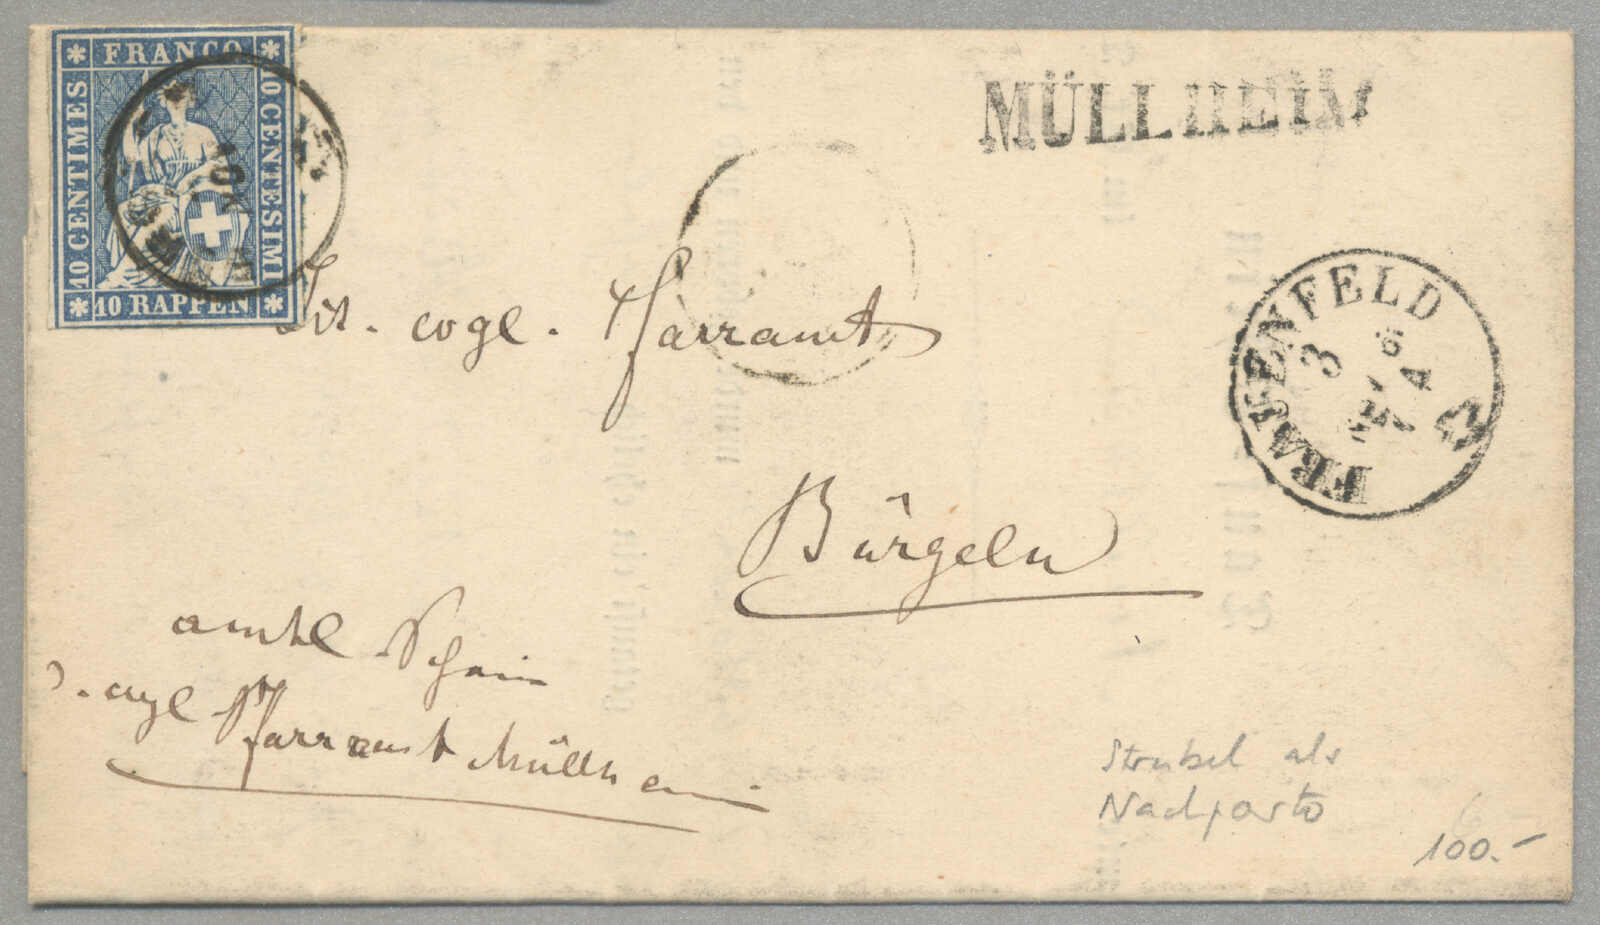 FRANCO
10 CENTIMES
10 CENTESIMI
10 RAPPEN
MÜLLHEIM
FRAUENFELD
3
Tit. evgl. Pfarramt
Bürgeln
amtl
Pfarramt Müllheim
Strubel als
Nachporto
100.-